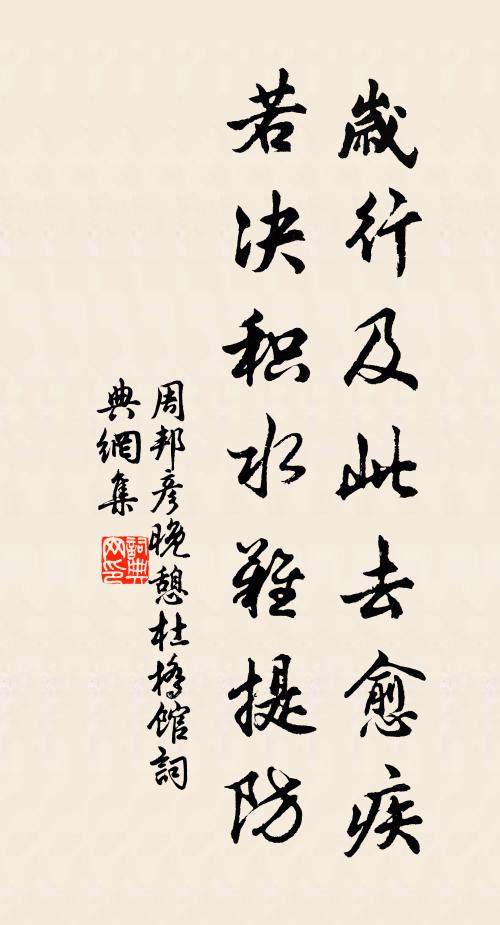 歲行及此去愈疾
若决积水難提防
周邦彥晚憩杜橋館詞
典網集
詞典网印